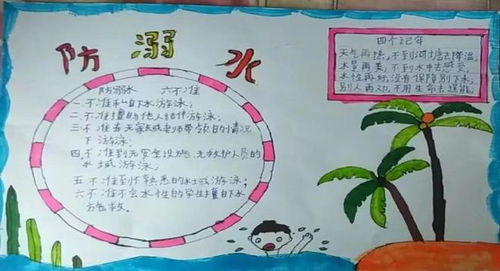 防溺水
防溺水 六不准
一不准私自下水游泳;
二不准擅自与他人结伴游泳;
三不准在无家长或老师带领的情况
下游泳;
四不准到无安全设施、无救护人员的
水域游泳;
五不准到不熟悉的水域游泳;
六不准不会水性的学生擅自下水
方施救。
四个记牢
天气再热,不到河塘去降温,
水景再美,不到水中去感受,
水性再好,没有保障别下水,
别人再劝,不用生命去逞能。